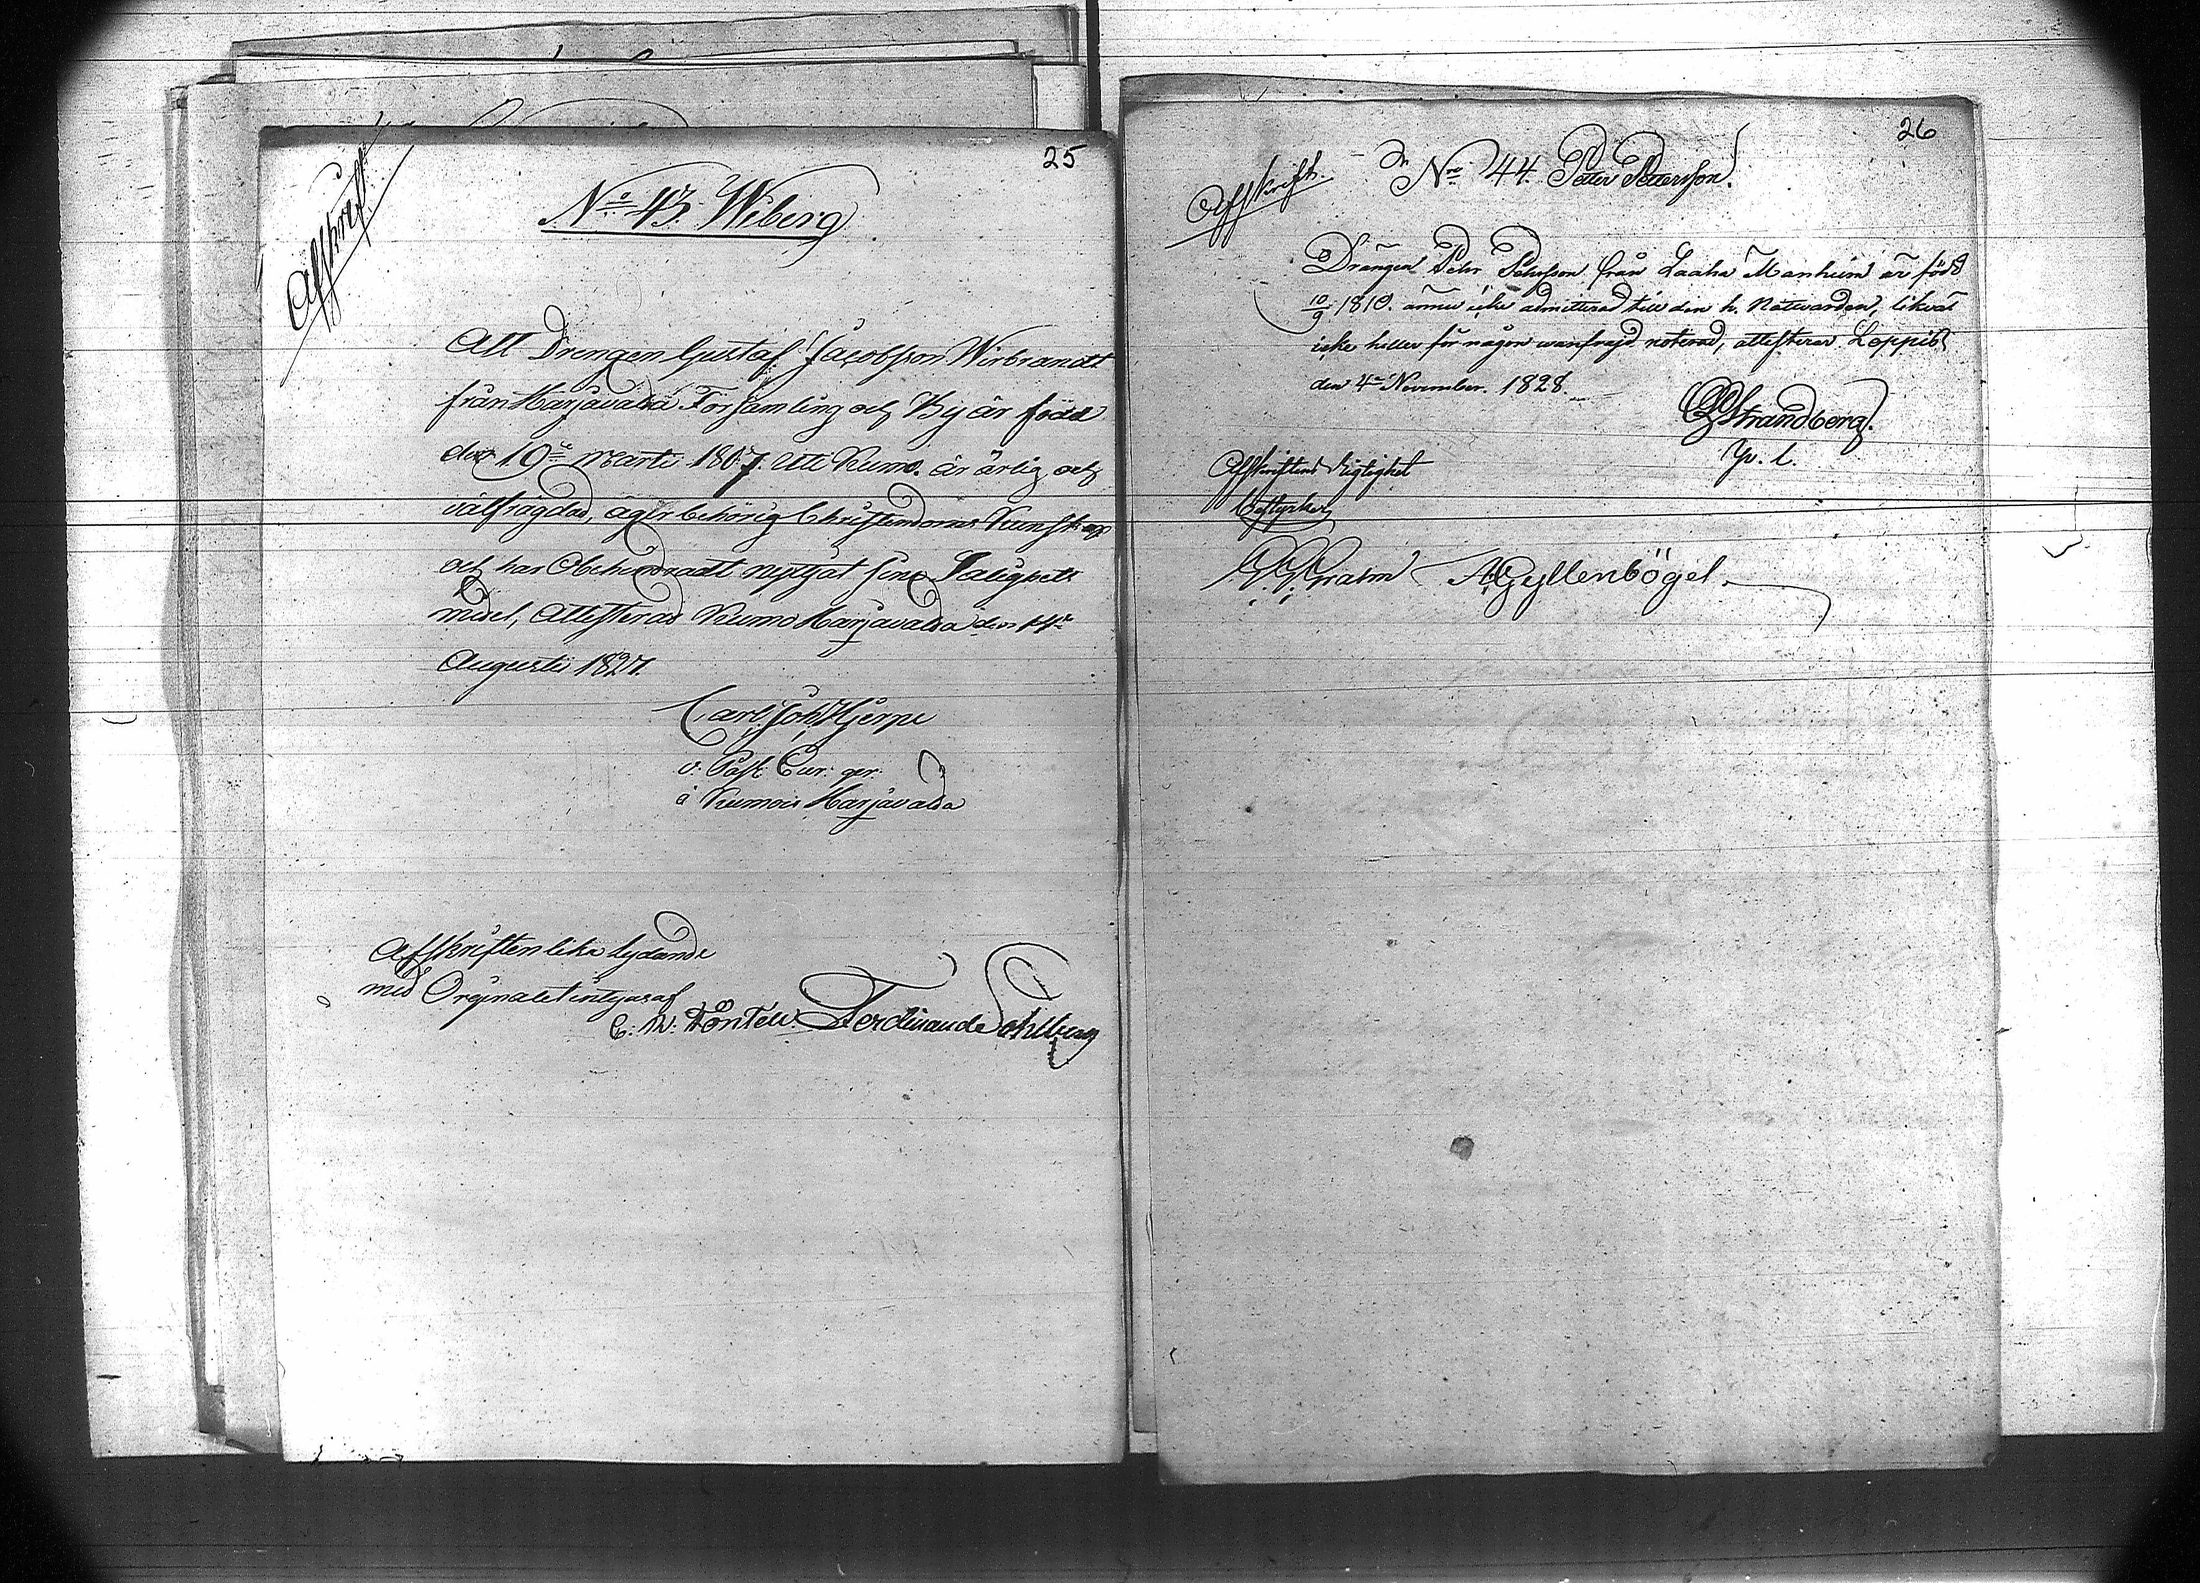 25
Afskrift
No 43. Wiberg
Att Drengen Gustaf Jacobsson Wirbrandt
från Harjavalda Församling och By är född
den 19de Martii 1807. Uti Kumo. är ärlig och
välfrägdad, äger behörig Christendoms Kunskap
och har Obehindradt nyttjat sine Salighets
medel, Attesteras Kumo Harjavalda den 14de
Augusti 1827.
Carl Joh Hjerpe
v: Past: Cur: ger:
à Kumois Harjavalda
Afskriften lika lydande
med Orginalet intygas af
C: W: Töntell. Ferdinand Sohlberg
26
Afskrift.
Nro 44. Petter Pettersson.
Drängen Pehr Pehrsson från Laaha Manheim är född
10/9 1810. ännu icke admitterad till den h. Nattvarden, likväl
icke heller för någon wanfrejd noterad, attesterar Loppis
den 4de November. 1828.
Strandberg.
Afskriftens Rigtighet
bestyrker
Gyllenbögel